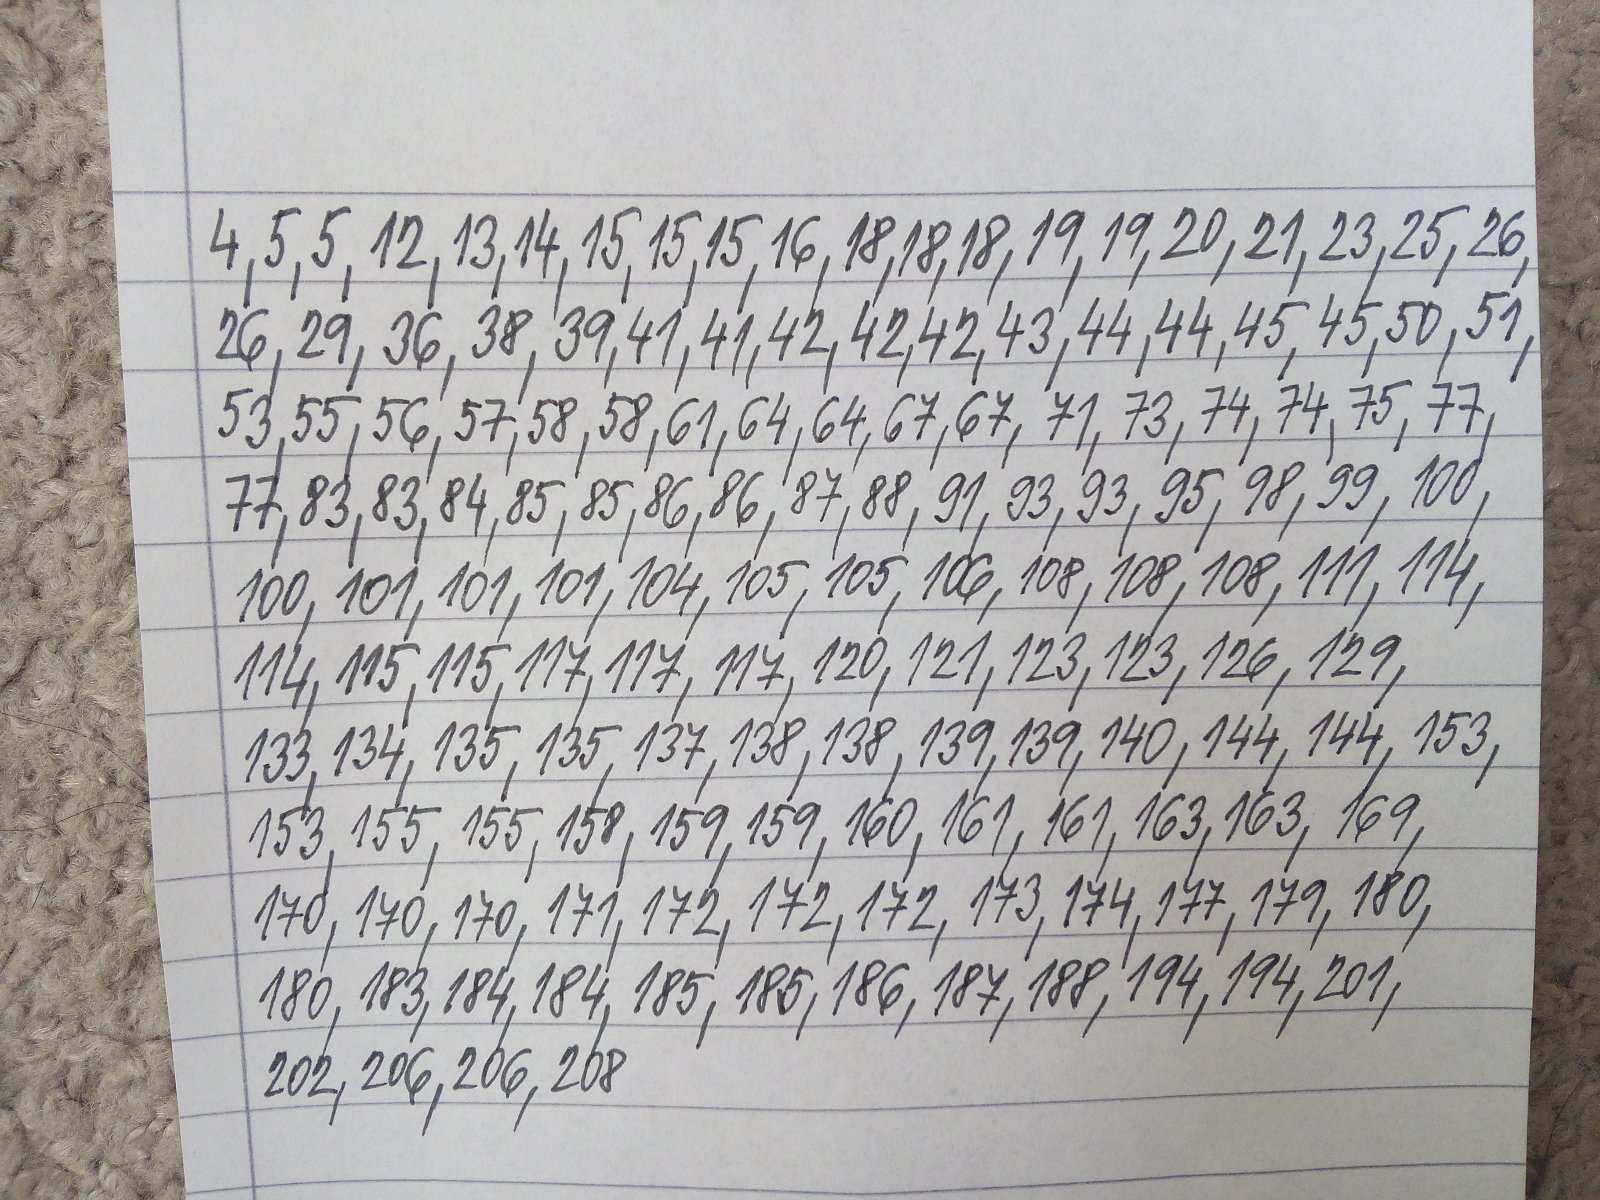 4, 5, 5, 12, 13, 14, 15, 15, 15, 16, 18, 18, 18, 19, 19, 20, 21, 23, 25, 26,
26, 29, 36, 38, 39, 41, 41, 42, 42, 42, 43, 44, 44, 45, 45, 50, 51,
53, 55, 56, 57, 58, 58, 61, 64, 64, 67, 67, 71, 73, 74, 74, 75, 77,
77, 83, 83, 84, 85, 85, 86, 86, 87, 88, 91, 93, 93, 95, 98, 99, 100,
100, 101, 101, 101, 104, 105, 105, 106, 108, 108, 108, 111, 114,
114, 115, 115, 117, 117, 117, 120, 121, 123, 123, 126, 129,
133, 134, 135, 135, 137, 138, 138, 139, 139, 140, 144, 144, 153,
153, 155, 155, 158, 159, 159, 160, 161, 161, 163, 163, 169,
170, 170, 170, 171, 172, 172, 172, 173, 174, 177, 179, 180,
180, 183, 184, 184, 185, 185, 186, 187, 188, 194, 194, 201,
202, 206, 206, 208